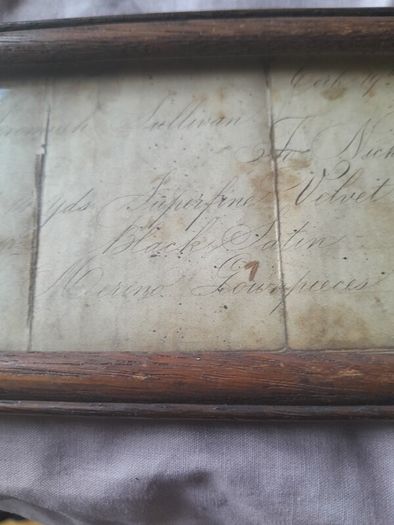 Cork 19
Sullivan
To Nich
yds Superfine Velvet
Black Satin
Merino Gownpieces